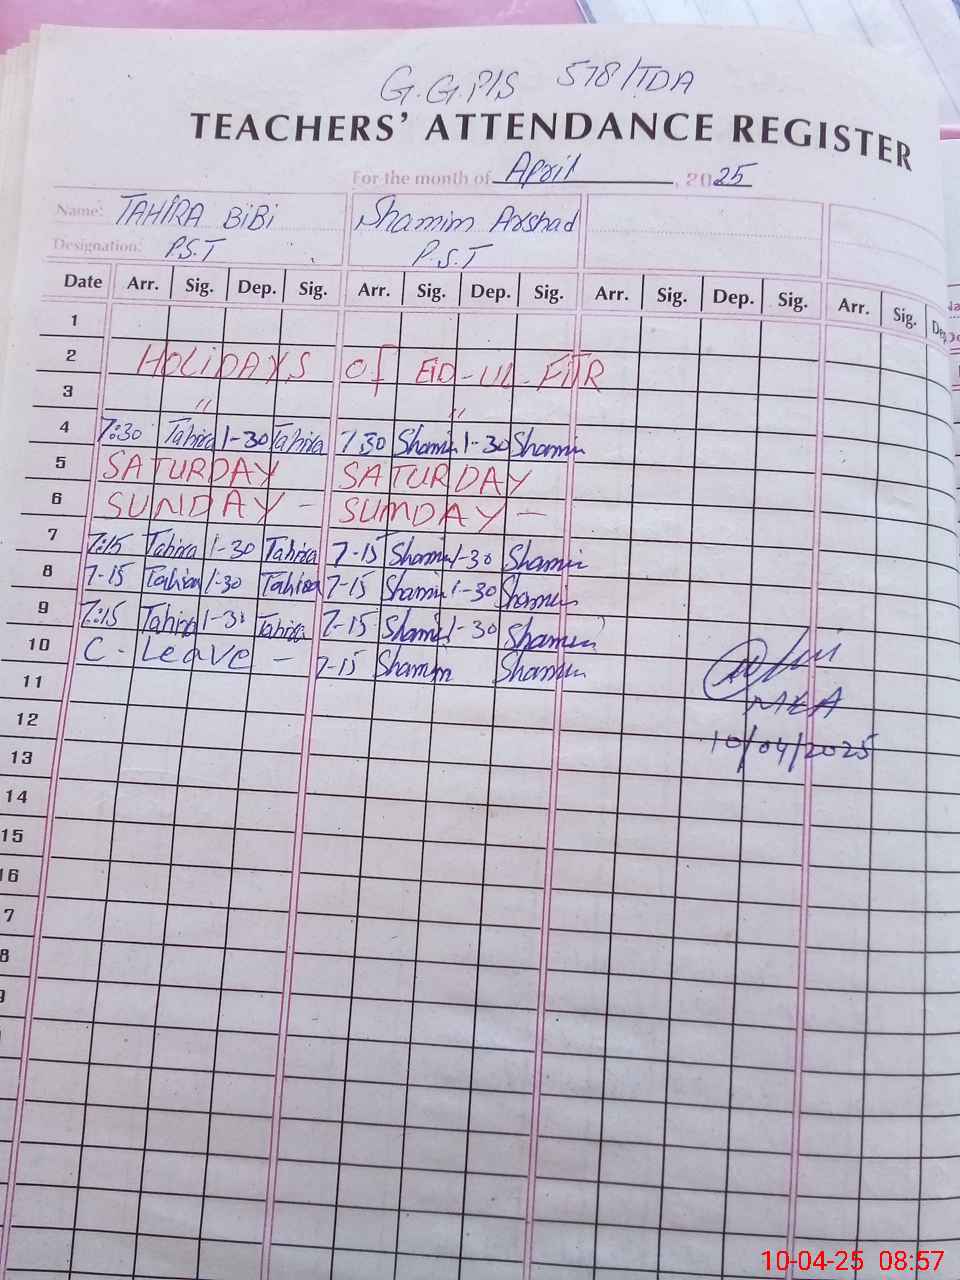 G.G.P/S 578/TDA
TEACHERS' ATTENDANCE REGISTER
For the month of April, 2025
Name: TAHIRA BiBi Shamim Arshad
Designation: P.S.T P.S.T
Date Arr. Sig. Dep. Sig. Arr. Sig. Dep. Sig. Arr. Sig. Dep. Sig. Arr. Sig. Dep
1
2 HOLiDAYS of EiD-UL-FiTR
3 " "
4 7:30 Tahira 1-30 Tahira 7:30 Shamim 1-30 Shamim
5 SATURDAY SATURDAY
6 SUNDAY - SUNDAY -
7 7:15 Tahira 1-30 Tahira 7-15 Shamim 1-30 Shamim
8 7-15 Tahira 1-30 Tahira 7-15 Shamim 1-30 Shamim
9 7:15 Tahira 1-30 Tahira 7-15 Shamim 1-30 Shamim
10 C - Leave - 7-15 Shamim Shamim
11
12 MEA
13 10/04/2025
14
15
16
7
8
9
10-04-25 08:57